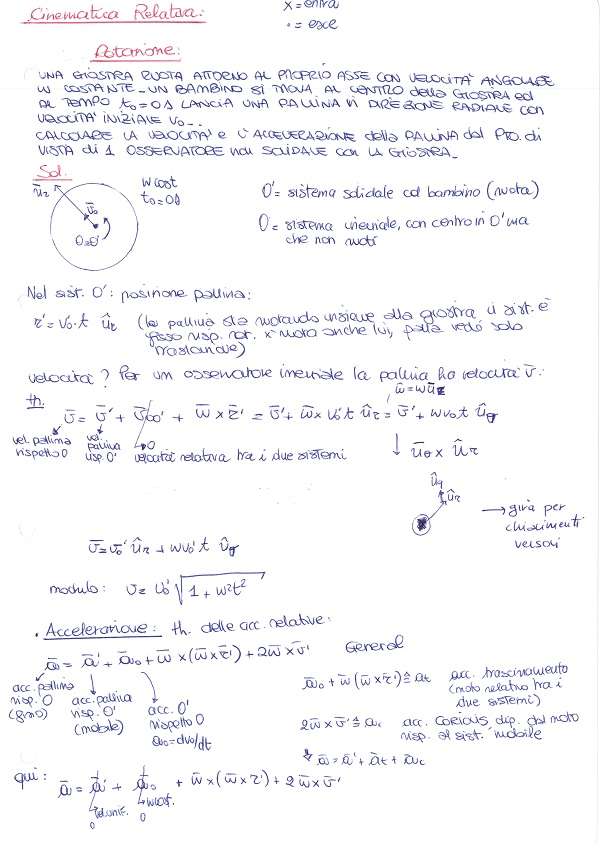 Cinematica Relativa:
X = entra
• = esce
Rotazione:
UNA GIOSTRA RUOTA ATTORNO AL PROPRIO ASSE CON VELOCITA' ANGOLARE
W COSTANTE. UN BAMBINO SI TROVA AL CENTRO della GIOSTRA ed
AL TEMPO t₀=0s LANCIA UNA PALLINA IN DIREZIONE RADIALE CON
VELOCITA' INIZIALE V₀.
CALCOLARE LA VELOCITA' e L'ACCELERAZIONE della PALLINA dal PTO. di
VISTA di 1 OSSERVATORE non SOLIDALE CON LA GIOSTRA.
Sol.
ūr
v̄₀
O≡O'
W cost
t₀=0s
O' = sistema solidale col bambino (ruota)
O = sistema inerziale, con centro in O' ma
che non ruoti
Nel sist. O': posizione pallina:
r' = V₀·t ûr (la pallina sta ruotando insieme alla giostra, il sist. è
fisso risp. rot. x ruota anche lui, palla vedo solo
traslazione)
velocità? Per un osservatore inerziale la pallina ha velocità v̄.
th.
w̄ = w ūz
v̄ = v̄' + v̄oo' + w̄ × r̄' = v̄' + w̄ × V₀'t ûr = v̄' + wv₀t ûθ
vel. pallina
rispetto O
vel.
pallina
risp. O'
0
velocità relativa tra i due sistemi
↓ ūθ × ûr
ûθ
ûr
→ gira per
chiarimenti
versori
v̄ = v₀' ûr + wv₀'t ûθ
modulo: v = v₀' √1 + w²t²
• Accelerazione: th. delle acc. relative:
ā = ā' + ā₀ + w̄ × (w̄ × r̄') + 2w̄ × v̄' General
acc. pallina
risp. O
(fisso)
acc. pallina
risp. O'
(mobile)
acc. O'
rispetto O
a₀ = dv₀/dt
ā₀ + w̄ (w̄ × r̄') ≙ at acc. trascinamento
(moto relativo tra i
due sistemi)
2w̄ × v̄' ≙ ac acc. CORIOLIS dip. dal moto
risp. al sist. mobile
ā = ā' + āt + āc
qui: ā = ā' + ā₀ + w̄ × (w̄ × r') + 2w̄ × v̄'
0
w cost.
0